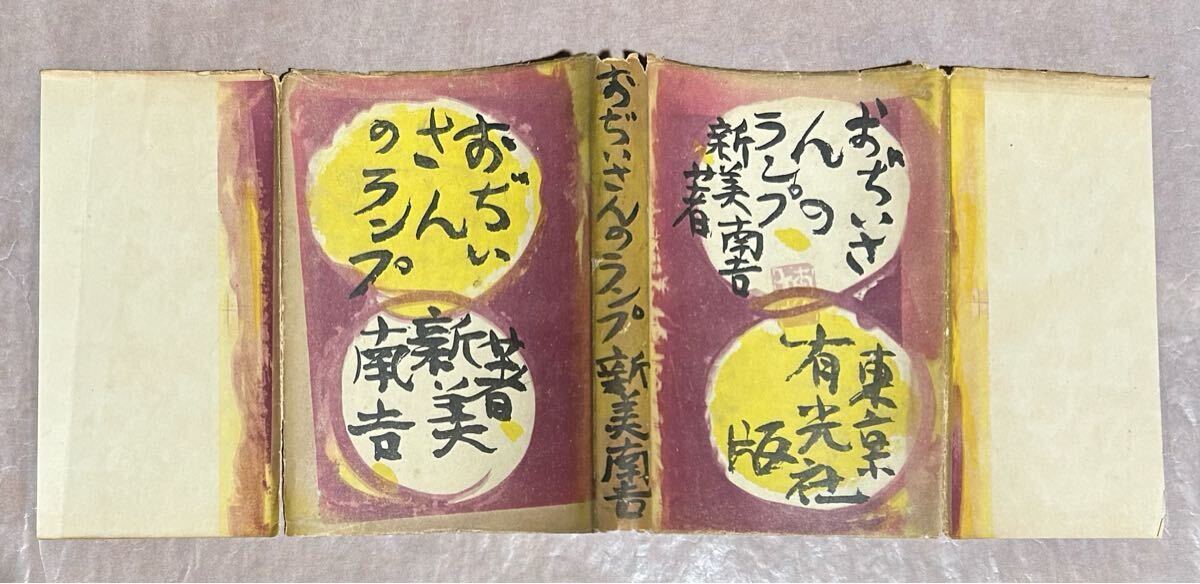 おぢい
さん
のランプ
著
新美
南吉
おぢいさんのランプ 新美南吉
おぢいさ
んの
ランプ
新美南吉
著
東京
有光社
版